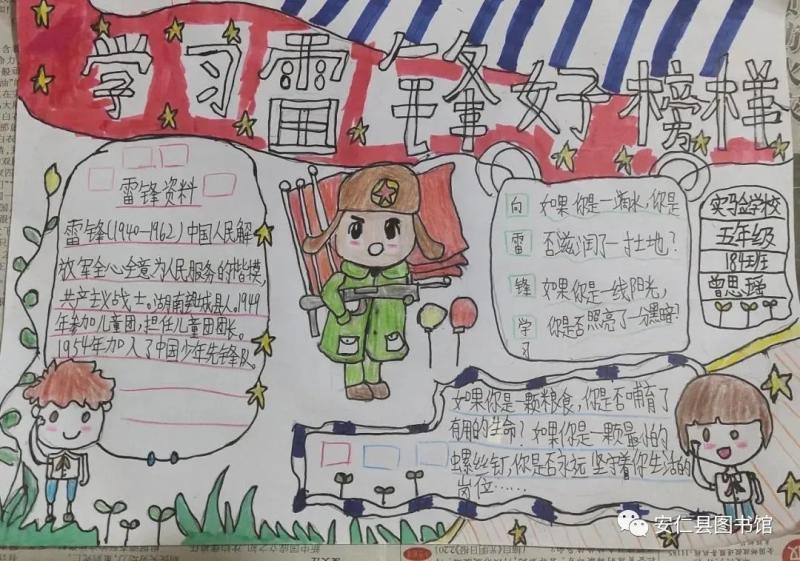 学习雷锋好榜样
雷锋资料
雷锋(1940-1962)中国人民解
放军全心全意为人民服务的楷模,
共产主义战士。湖南望城县人。1949
年参加儿童团,担任儿童团团长。
1954年加入了中国少年先锋队。
向雷锋学习
如果你是一滴水,你是
否滋润了一寸土地?
如果你是一线阳光,
你是否照亮了一分黑暗?
实验学校
五年级
184班
曾思
如果你是一颗粮食,你是否哺育了
有用的生命?如果你是一颗最小的
螺丝钉,你是否永远坚守着你生活的
岗位……
安仁县图书馆